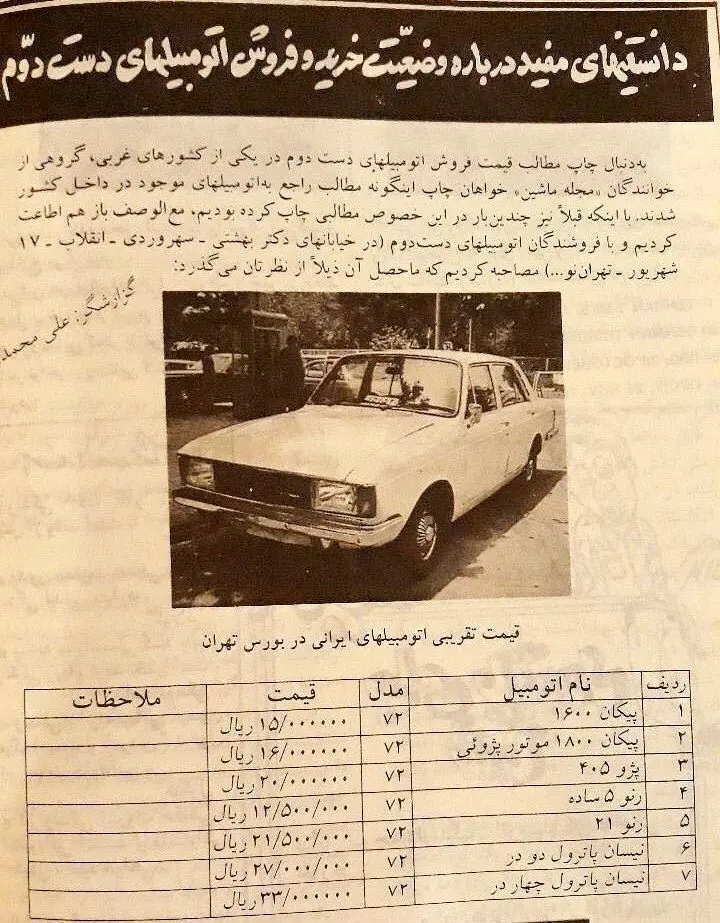 دانستنیهای مفید درباره وضعیّت خرید و فروش اتومبیلهای دست دوّم
به‌دنبال چاپ مطالب قیمت فروش اتومبیلهای دست دوم در یکی از کشورهای غربی، گروهی از
خوانندگان «مجله ماشین» خواهان چاپ اینگونه مطالب راجع به‌اتومبیلهای موجود در داخل کشور
شدند. با اینکه قبلاً نیز چندین‌بار در این خصوص مطالبی چاپ کرده بودیم، مع‌الوصف باز هم اطاعت
کردیم و با فروشندگان اتومبیلهای دست‌دوم (در خیابانهای دکتر بهشتی ـ سهروردی ـ انقلاب ـ ۱۷
شهریور ـ تهران‌نو...) مصاحبه کردیم که ماحصل آن ذیلاً از نظرتان می‌گذرد:
گزارشگر: علی محمد
قیمت تقریبی اتومبیلهای ایرانی در بورس تهران
ردیف نام اتومبیل مدل قیمت ملاحظات
۱ پیکان ۱۶۰۰ ۷۲ ۱۵/۰۰۰۰۰۰ ریال
۲ پیکان ۱۸۰۰ موتور پژوئی ۷۲ ۱۶/۰۰۰۰۰۰ ریال
۳ پژو ۴۰۵ ۷۲ ۲۰/۰۰۰۰۰۰ ریال
۴ رنو ۵ ساده ۷۲ ۱۲/۵۰۰/۰۰۰ ریال
۵ رنو ۲۱ ۷۲ ۲۱/۵۰۰/۰۰۰ ریال
۶ نیسان پاترول دو در ۷۲ ۲۷/۰۰۰/۰۰۰ ریال
۷ نیسان پاترول چهار در ۷۲ ۳۳/۰۰۰۰۰۰ ریال